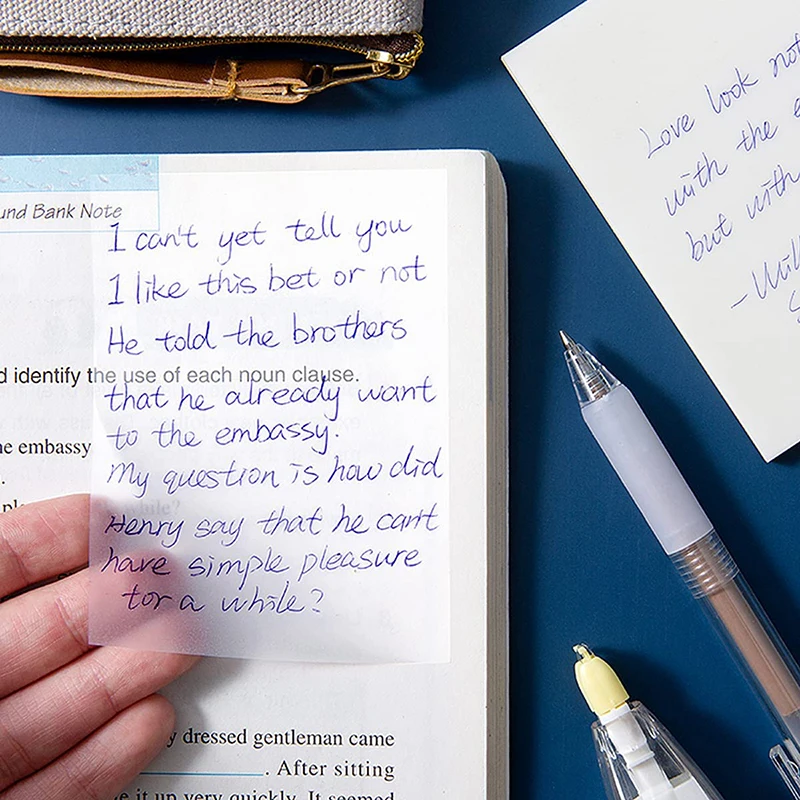 und Bank Note
I can't yet tell you
I like this bet or not
He told the brothers
d identify the use of each noun clause.
that he already want
he embassy
to the embassy.
My question is how did
while?
Henry say that he can't
have simple pleasure
for a while?
y dressed gentleman came
. After sitting
e it up very quickly. It seemed
Love look not
with the e
but with